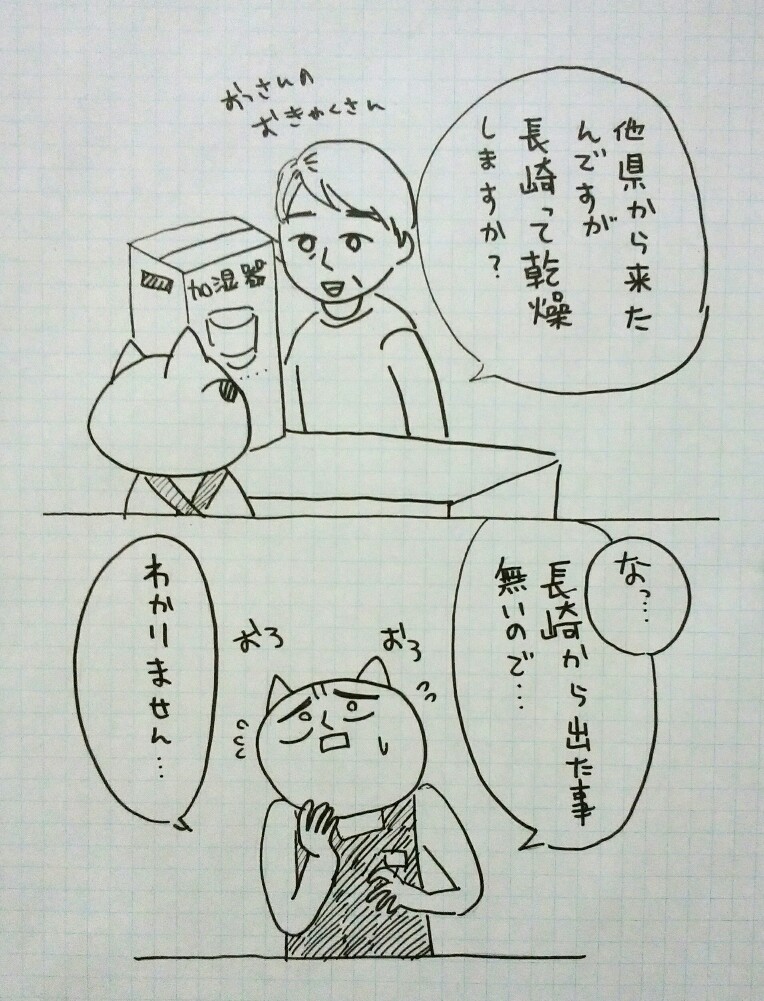 おっさんの
おきゃくさん
他県から来た
んですが
長崎って乾燥
しますか？
加湿器
なっ…
長崎から出た事
無いので…
おろ
おろ
わかりません…